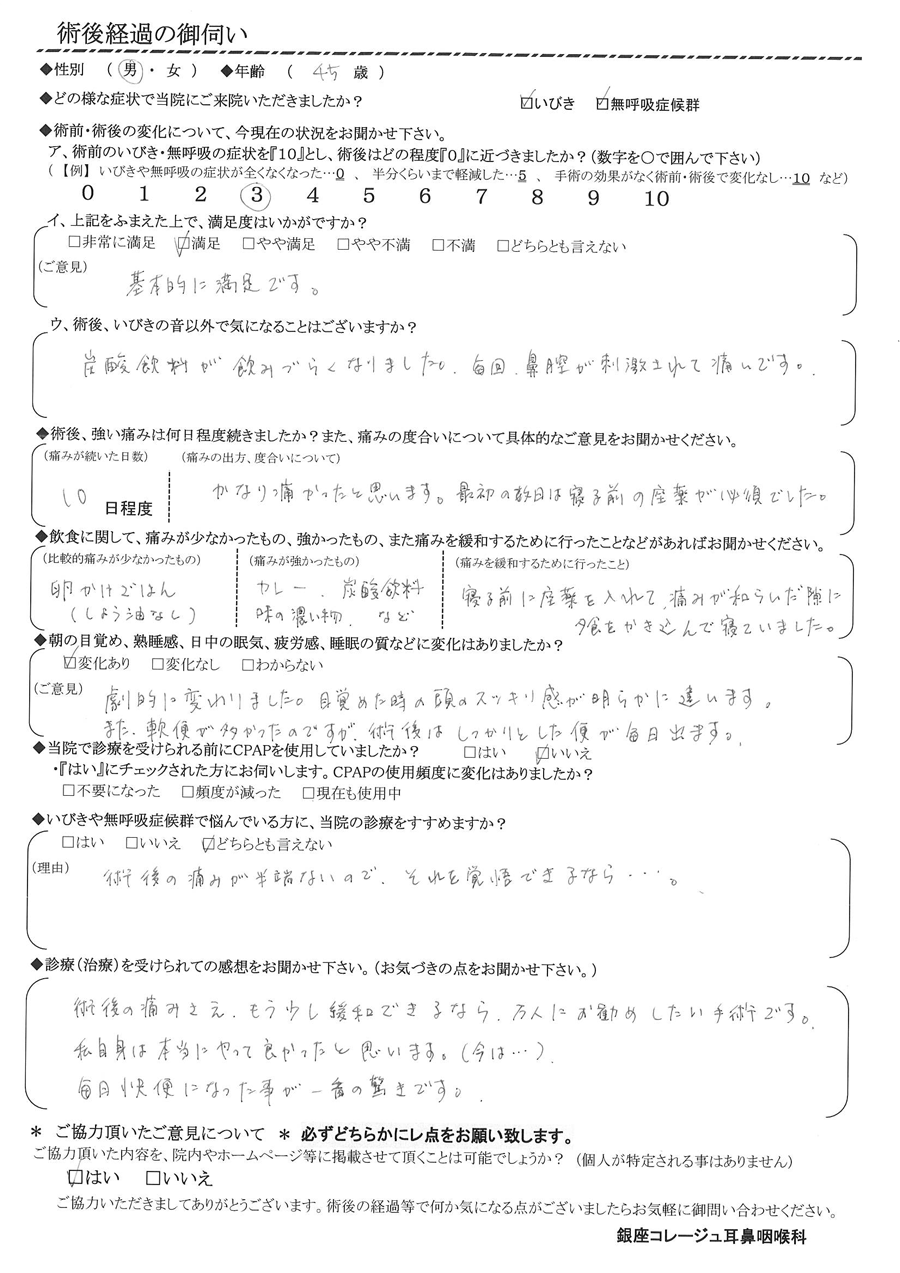 術後経過の御伺い
◆性別 （ 男 ・ 女 ） ◆年齢 （ 45 歳 ）
◆どの様な症状で当院にご来院いただきましたか？ ☑いびき ☑無呼吸症候群
◆術前・術後の変化について、今現在の状況をお聞かせ下さい。
ア、術前のいびき・無呼吸の症状を『10』とし、術後はどの程度『0』に近づきましたか？（数字を○で囲んで下さい）
（【例】 いびきや無呼吸の症状が全くなくなった…0 、 半分くらいまで軽減した…5 、 手術の効果がなく術前・術後で変化なし…10 など）
0 1 2 3 4 5 6 7 8 9 10
イ、上記をふまえた上で、満足度はいかがですか？
□非常に満足 ☑満足 □やや満足 □やや不満 □不満 □どちらとも言えない
（ご意見）
基本的に満足です。
ウ、術後、いびきの音以外で気になることはございますか？
炭酸飲料が飲みづらくなりました。毎回、鼻腔が刺激されて痛いです。
◆術後、強い痛みは何日程度続きましたか？また、痛みの度合いについて具体的なご意見をお聞かせください。
（痛みが続いた日数） （痛みの出方、度合いについて）
10 日程度 かなり痛かったと思います。最初の数日は寝る前の座薬が必須でした。
◆飲食に関して、痛みが少なかったもの、強かったもの、また痛みを緩和するために行ったことなどがあればお聞かせください。
（比較的痛みが少なかったもの） （痛みが強かったもの） （痛みを緩和するために行ったこと）
卵かけごはん カレー、炭酸飲料 寝る前に座薬を入れて、痛みが和らいだ隙に
（しょう油なし） 味の濃い物、など 夕食をかき込んで寝ていました。
◆朝の目覚め、熟睡感、日中の眠気、疲労感、睡眠の質などに変化はありましたか？
☑変化あり □変化なし □わからない
（ご意見） 劇的に変わりました。目覚めた時の頭のスッキリ感が明らかに違います。
また、軟便が多かったのですが、術後はしっかりとした便が毎日出ます。
◆当院で診療を受けられる前にCPAPを使用していましたか？ □はい ☑いいえ
・『はい』にチェックされた方にお伺いします。CPAPの使用頻度に変化はありましたか？
□不要になった □頻度が減った □現在も使用中
◆いびきや無呼吸症候群で悩んでいる方に、当院の診療をすすめますか？
□はい □いいえ ☑どちらとも言えない
（理由） 術後の痛みが半端ないので、それを覚悟できるなら・・・。
◆診療（治療）を受けられての感想をお聞かせ下さい。（お気づきの点をお聞かせ下さい。）
術後の痛みさえ、もう少し緩和できるなら、万人にお勧めしたい手術です。
私自身は本当にやって良かったと思います。（今は…）
毎日快便になった事が一番の驚きです。
＊ ご協力頂いたご意見について ＊ 必ずどちらかにレ点をお願い致します。
ご協力頂いた内容を、院内やホームページ等に掲載させて頂くことは可能でしょうか？ （個人が特定される事はありません）
☑はい □いいえ
ご協力いただきましてありがとうございます。術後の経過等で何か気になる点がございましたらお気軽に御問い合わせください。
銀座コレージュ耳鼻咽喉科